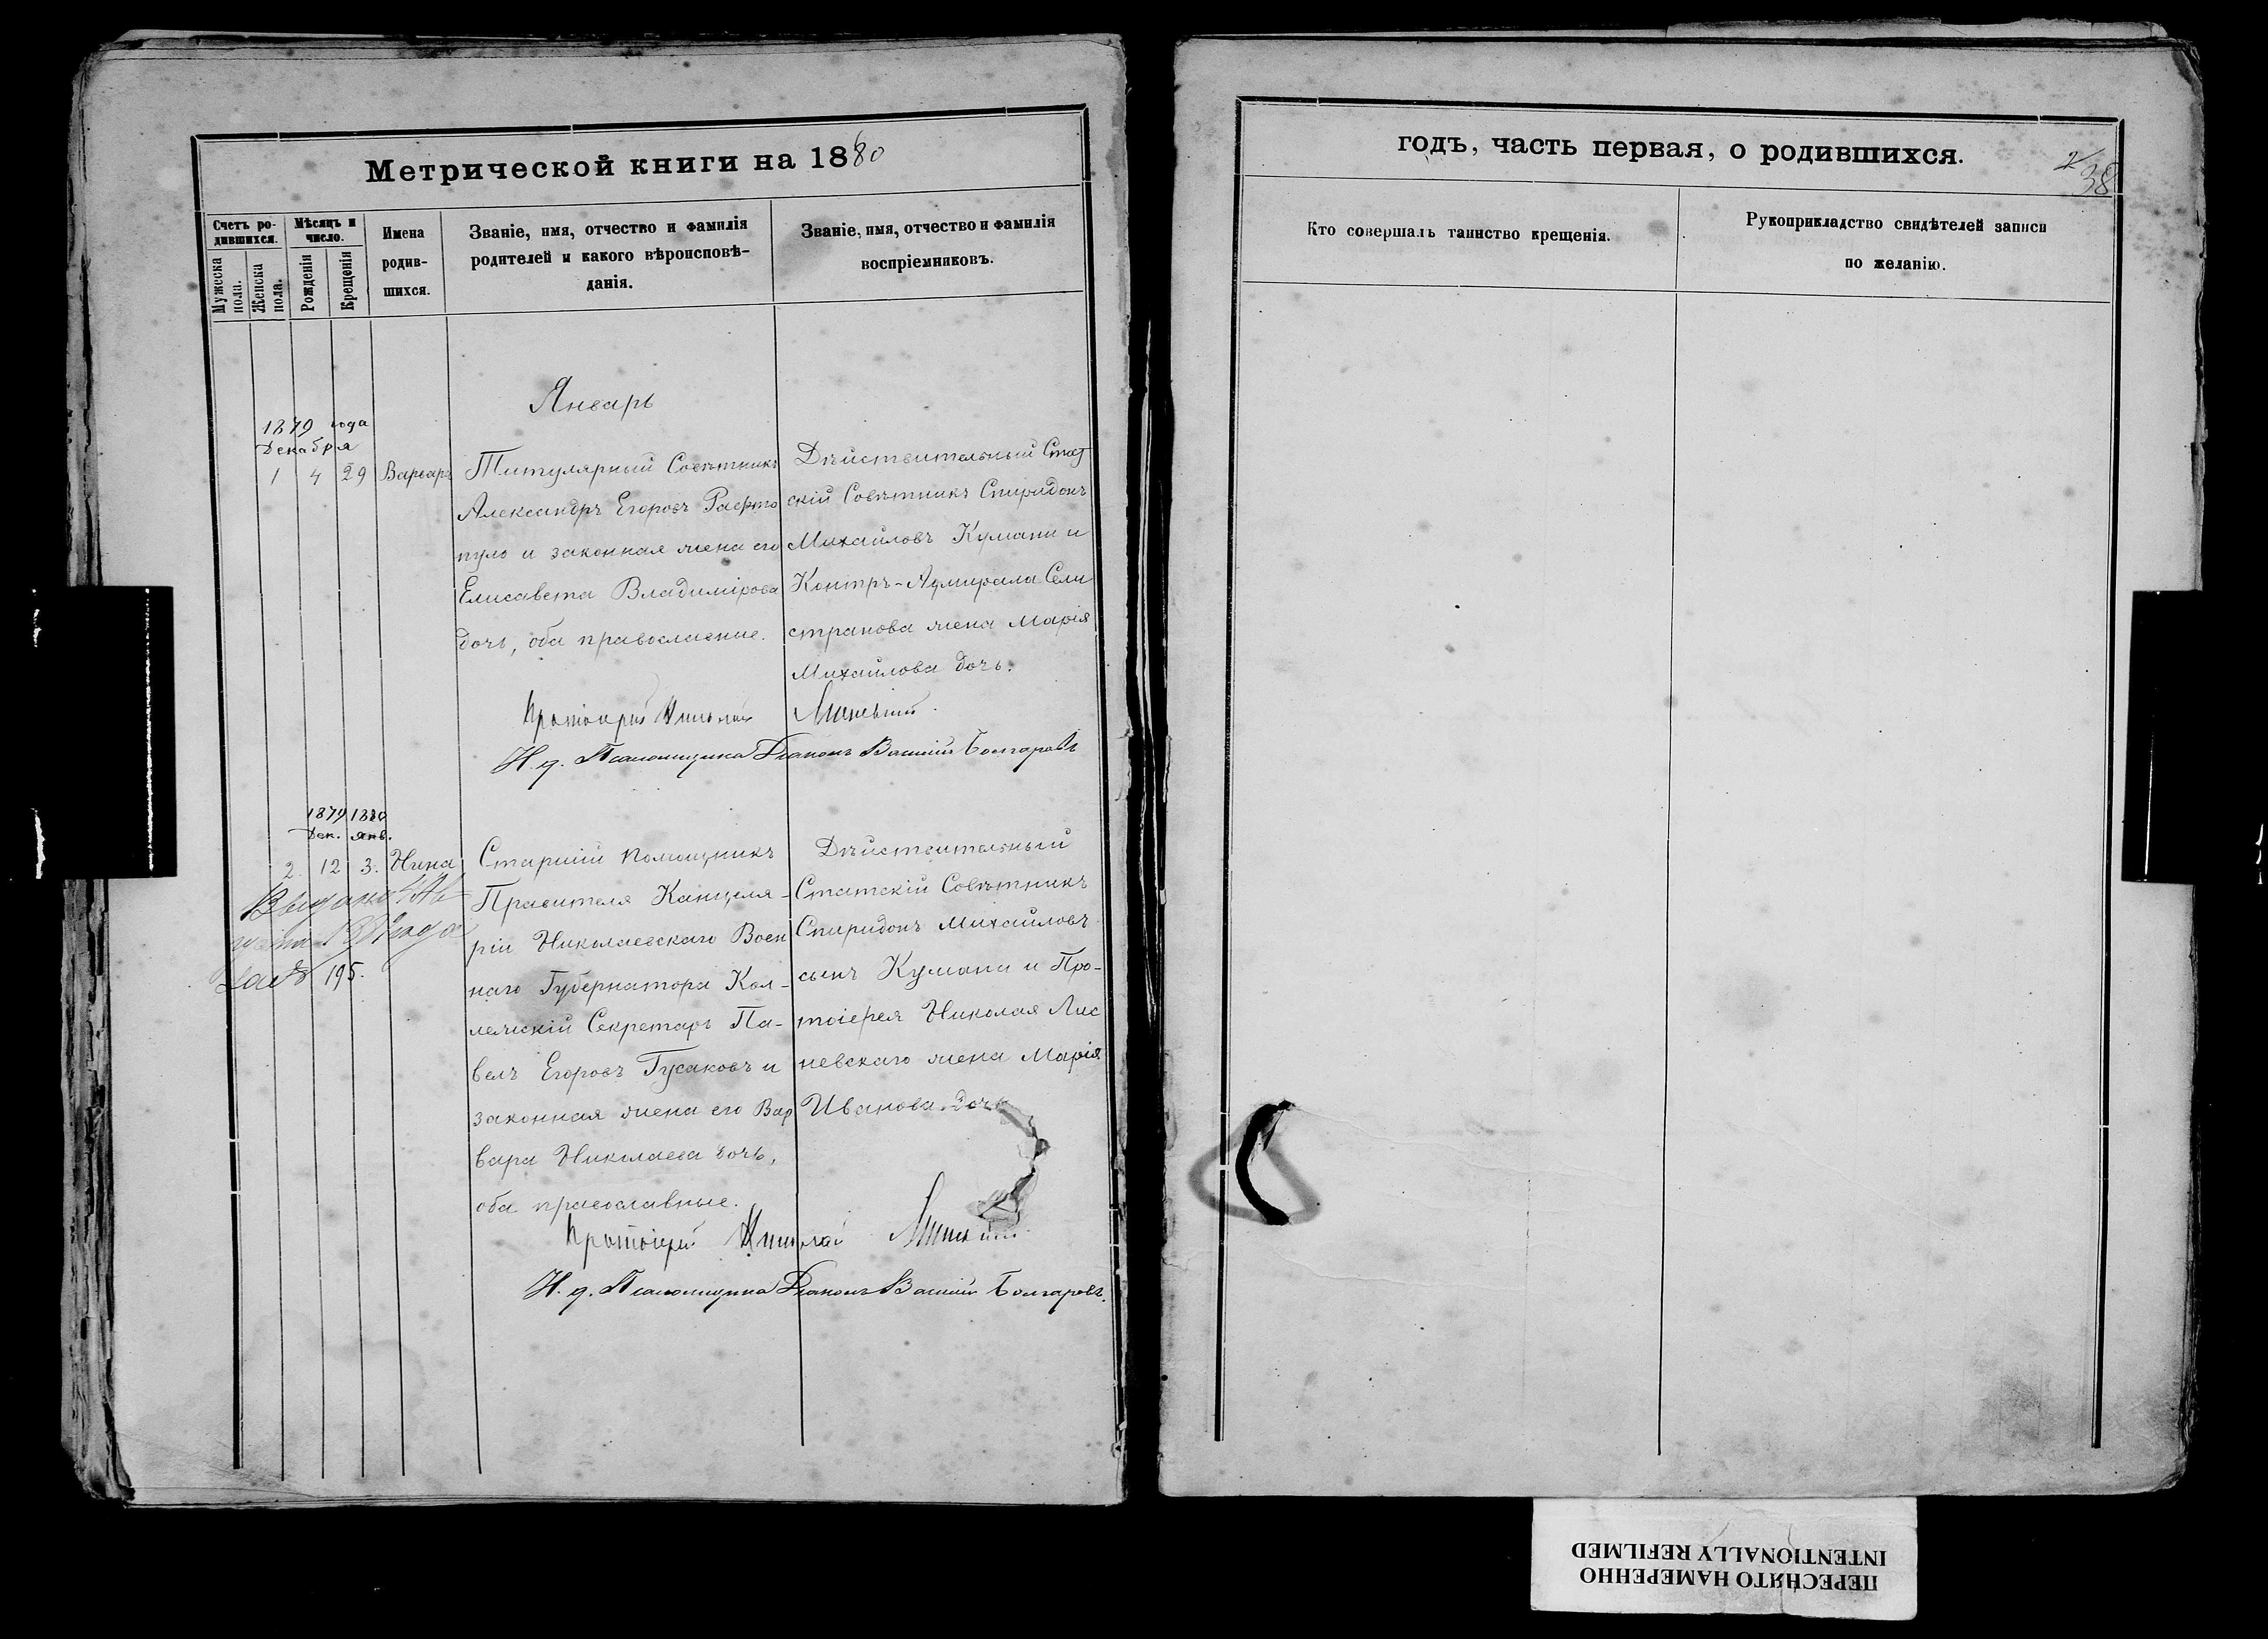 Метрической книги на 1880
Счетъ ро-
дившихся.
Мѣсяцъ и
число.
Мужеска
пола.
Женска
пола.
Рожденія
Крещенія
Имена
родив-
шихся.
Званіе, имя, отчество и фамилія
родителей и какого вѣроисповѣ-
данія.
Званіе, имя, отчество и фамилія
воспріемниковъ.
Январь
1879 года
Декабря
1 4 29 Варвара
Титулярный Совѣтникъ
Александръ Егоровъ Рафто
пуло и законная жена его
Елисавета Владимірова
дочь, оба православные.
Дѣйствительный Стат
скій Совѣтникъ Спиридонъ
Михайловъ Кумани и
Контръ-Адмирала Сели
странова жена Марія
Михайлова дочь.
Протоіерей Николай
И. д. Псаломщика Діаконъ Василій Болгаровъ
1879 1880
Дек. Янв.
2. 12 3. Нина
Выдано
года
195.
Старшій Помощникъ
Правителя Канцеля-
ріи Николаевскаго Воен
наго Губернатора Кол-
лежскій Секретарь Па-
велъ Егоровъ Гусаковъ и
законная жена его Вар
вара Николаева дочь,
оба православные.
Дѣйствительный
Статскій Совѣтникъ
Спиридонъ Михайловъ
сынъ Кумани и Про-
тоіерея Николая Лис
невскаго жена Марія
Иванова дочь
Протоіерей Николай
И. д. Псаломщика Діаконъ Василій Болгаровъ.
годъ, часть первая, о родившихся.
38
Кто совершалъ таинство крещенія.
Рукоприкладство свидѣтелей записи
по желанію.
ПЕРЕСНЯТО НАМЕРЕННО
INTENTIONALLY REFILMED